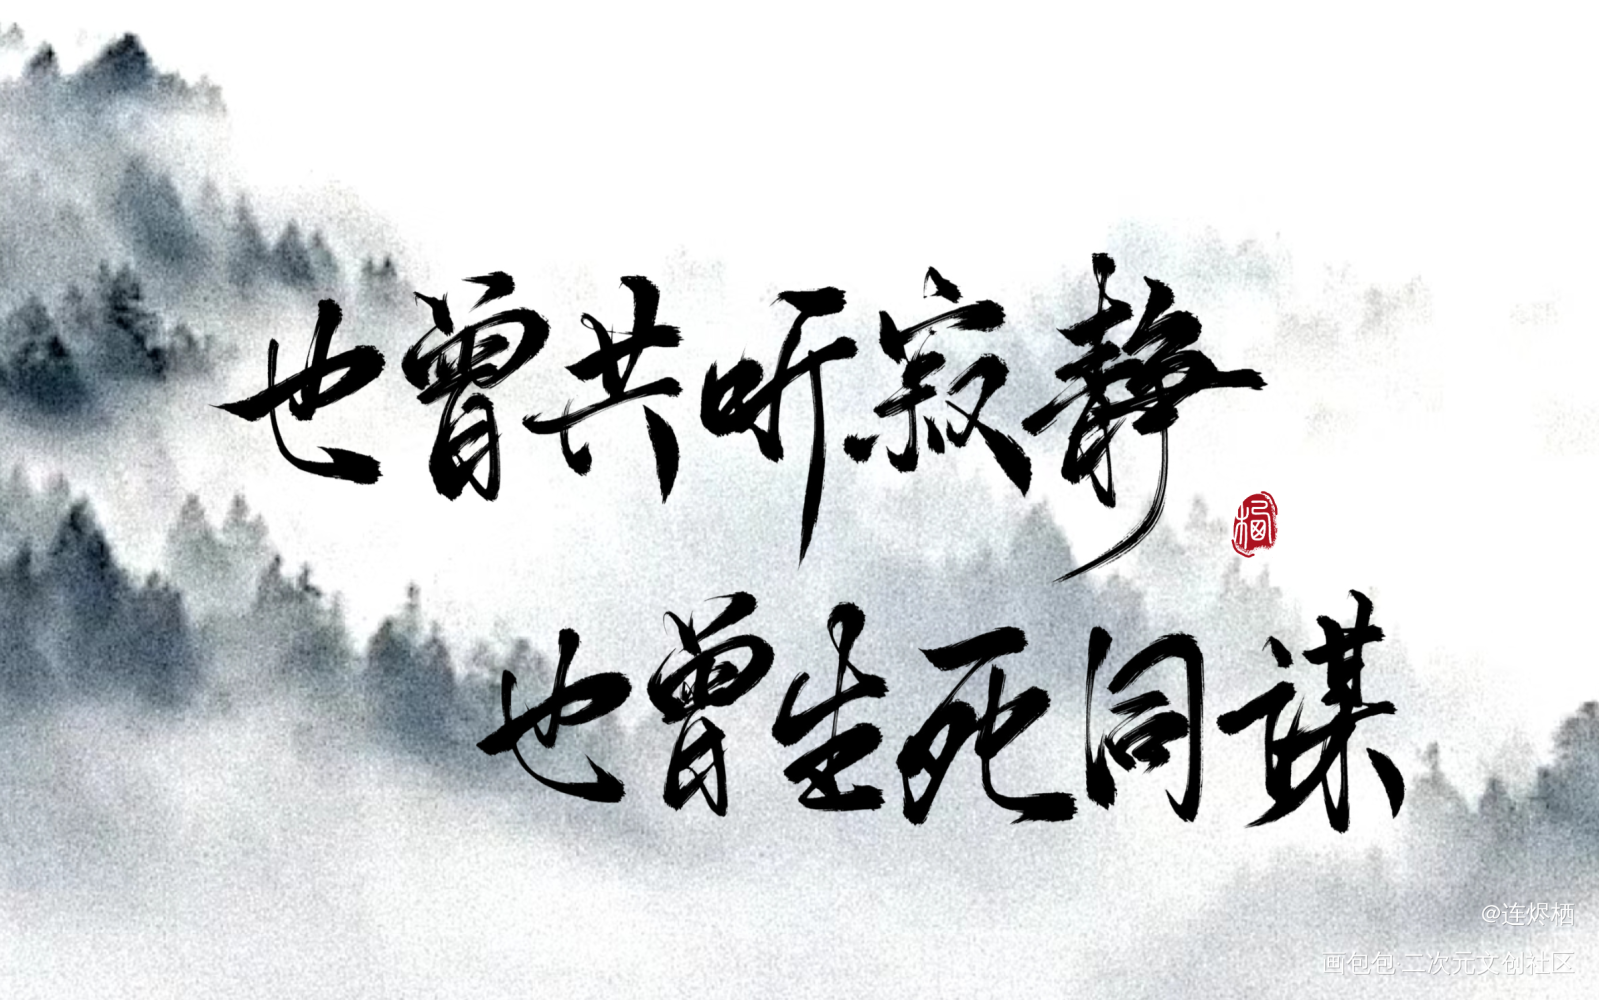 也曾共听寂静
栖
也曾生死同谋
@连烬栖
画包包 二次元文创社区